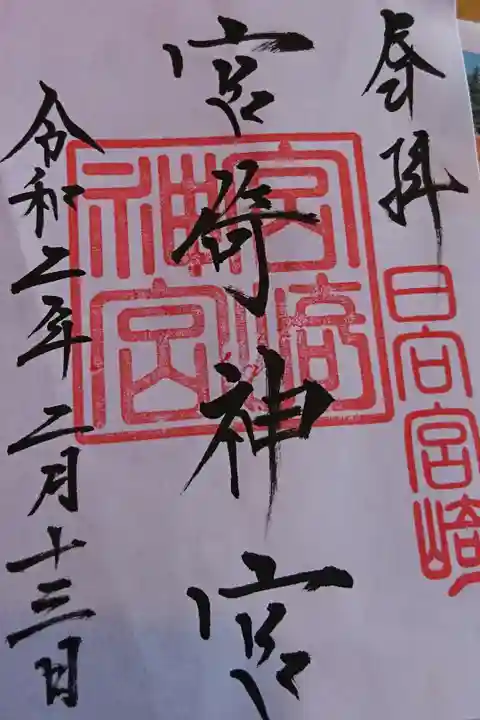 奉拝
日向宮崎
宮崎神宮
宮崎神宮
令和二年二月十三日